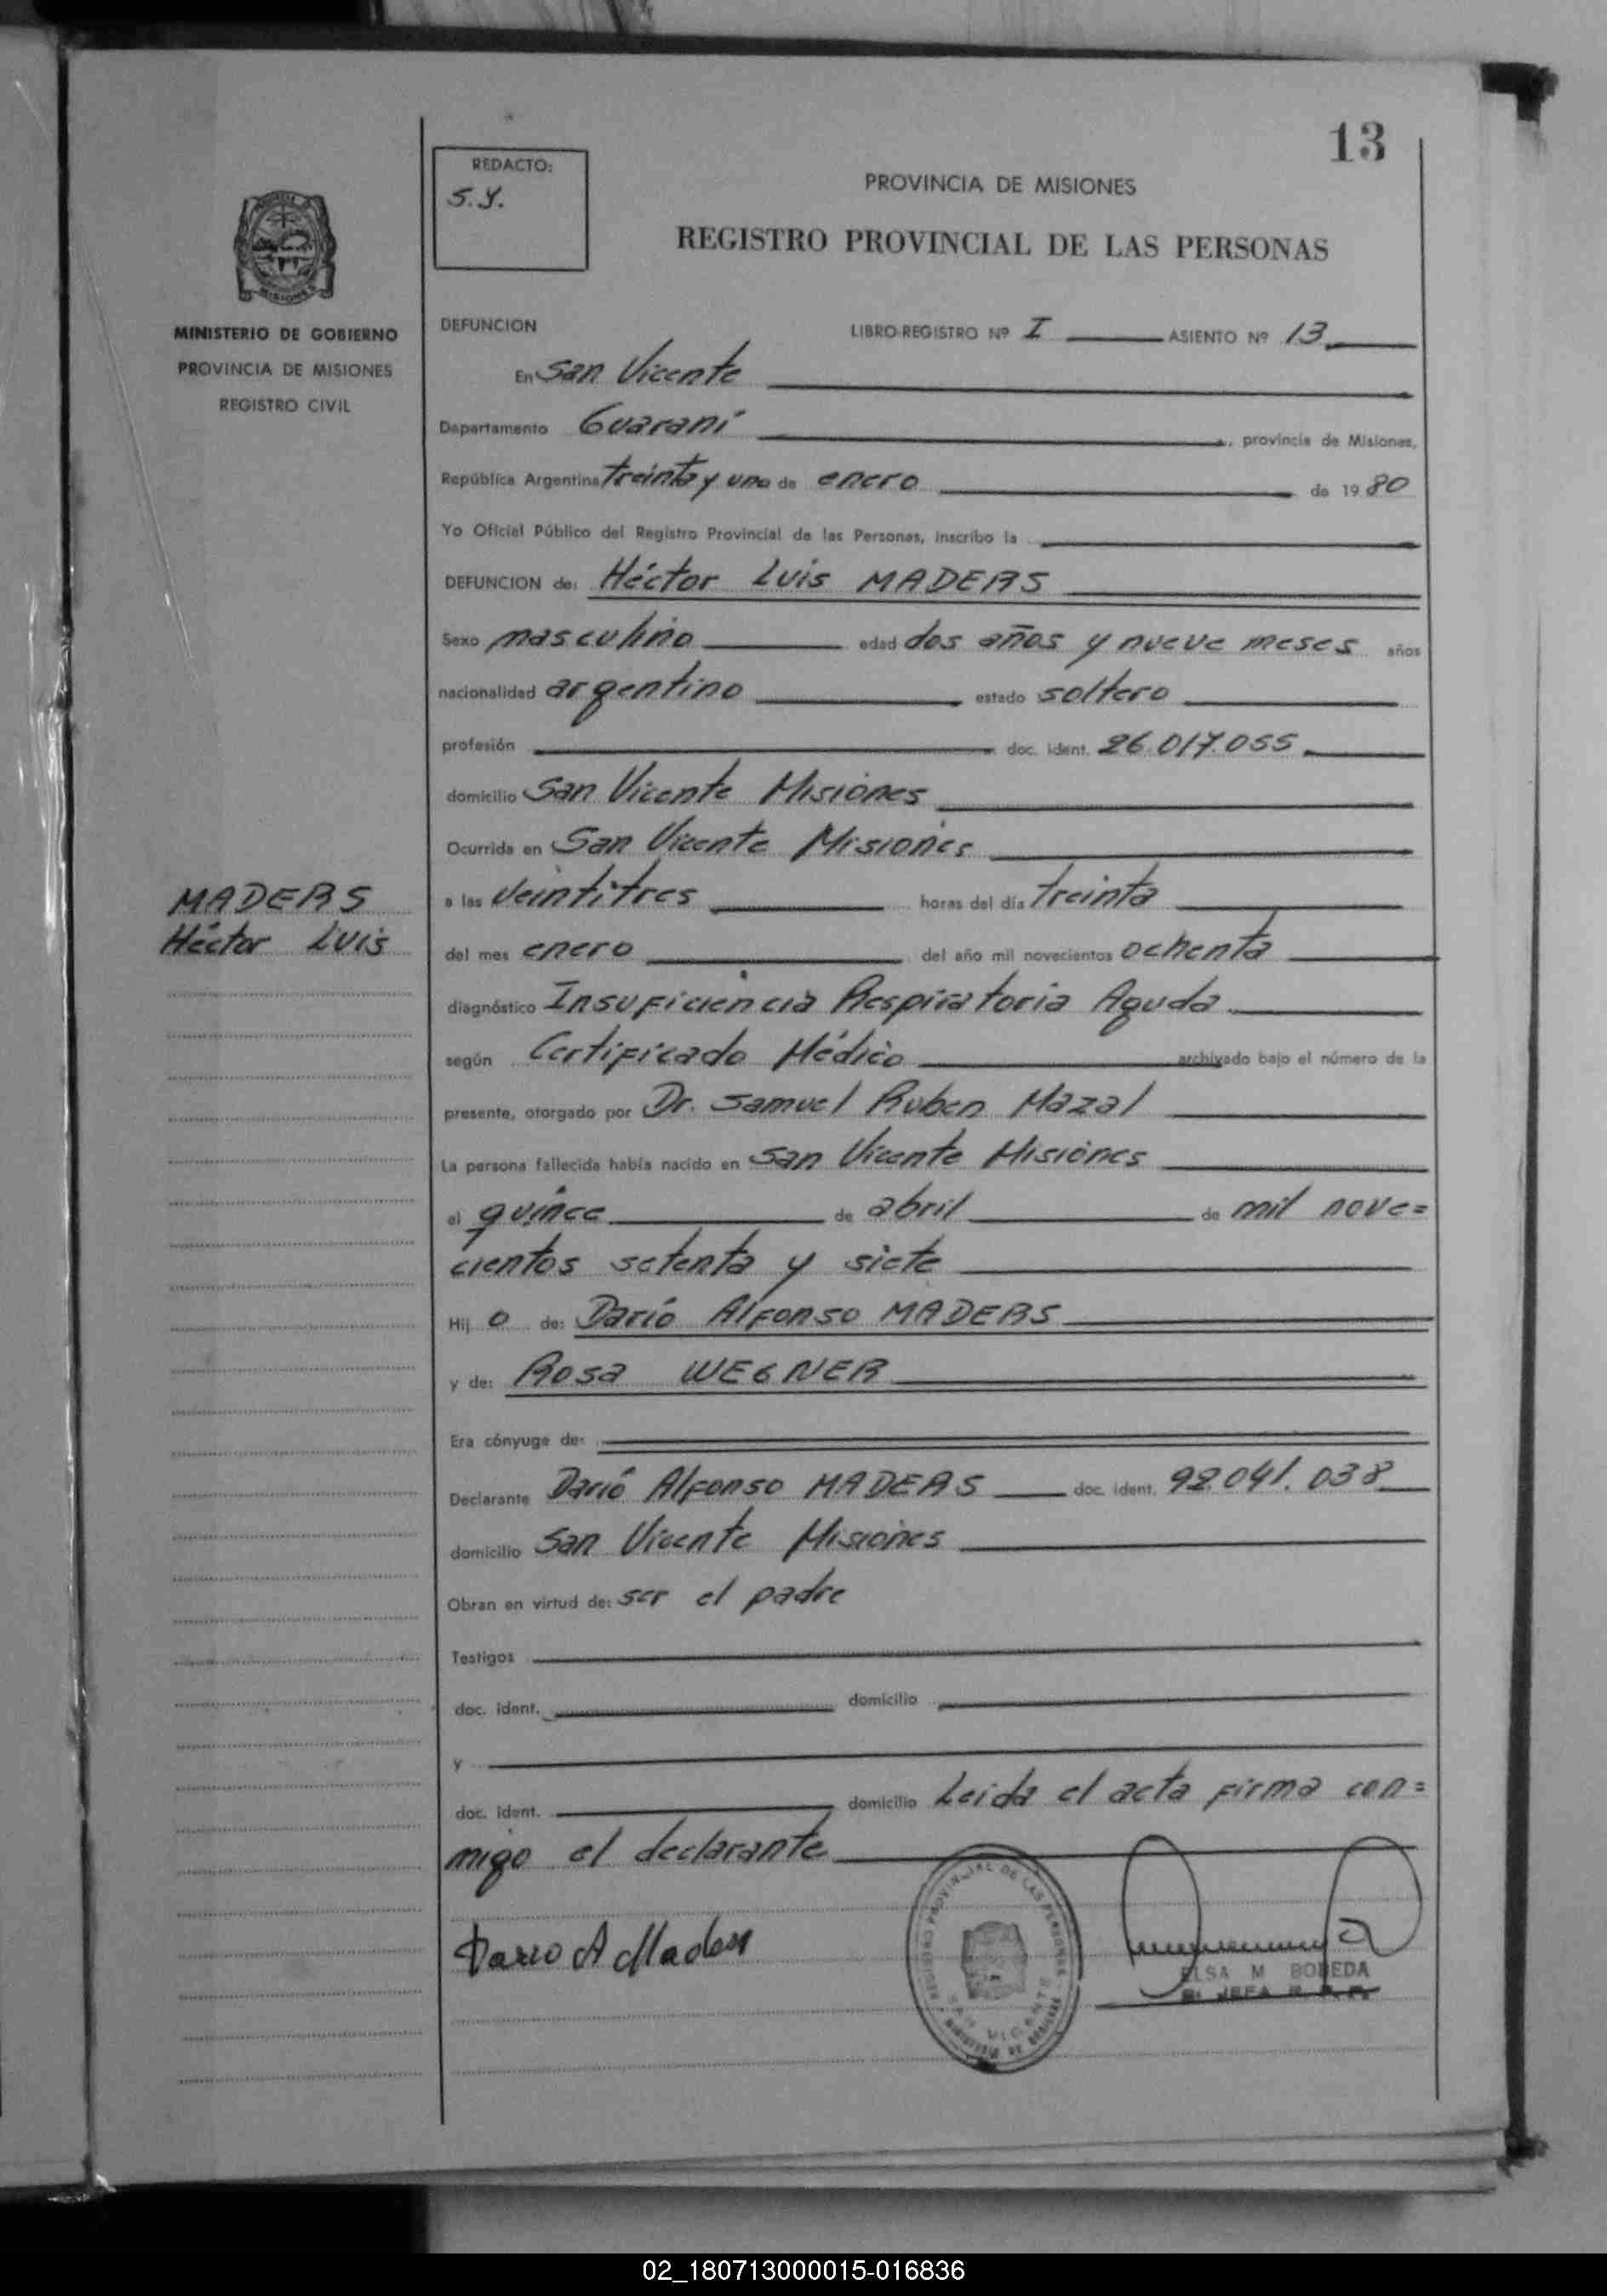 13
REDACTO:
S.Y.
PROVINCIA DE MISIONES
REGISTRO PROVINCIAL DE LAS PERSONAS
MISIONES
MINISTERIO DE GOBIERNO
PROVINCIA DE MISIONES
REGISTRO CIVIL
DEFUNCION LIBRO-REGISTRO Nº I ASIENTO Nº 13
En San Vicente
Departamento Guaraní, provincia de Misiones,
República Argentina treinta y uno de enero de 1980
Yo Oficial Público del Registro Provincial de las Personas, inscribo la
DEFUNCION de: Héctor Luis MADERS
Sexo masculino edad dos años y nueve meses años
nacionalidad argentino estado soltero
profesión doc. ident. 26.017.055
domicilio San Vicente Misiones
Ocurrida en San Vicente Misiones
MADERS
Héctor Luis
a las veintitres horas del día treinta
del mes enero del año mil novecientos ochenta
diagnóstico Insuficiencia Respiratoria Aguda
según Certificado Médico archivado bajo el número de la
presente, otorgado por Dr. Samuel Ruben Mazal
La persona fallecida había nacido en San Vicente Misiones
el quince de abril de mil nove=
cientos setenta y siete
Hijo de: Darío Alfonso MADERS
y de: Rosa WEGNER
Era cónyuge de:
Declarante Darió Alfonso MADERS doc. ident. 92.041.038
domicilio San Vicente Misiones
Obran en virtud de: ser el padre
Testigos
doc. ident. domicilio
y
doc. ident. domicilio Leida el acta firma con=
migo el declarante
Dario A Maders
REGISTRO PROVINCIAL DE LAS PERSONAS
SAN VICENTE
MINISTERIO DE GOBIERNO
ELSA M BOBEDA
JEFA R. P. P.
02_180713000015-016836